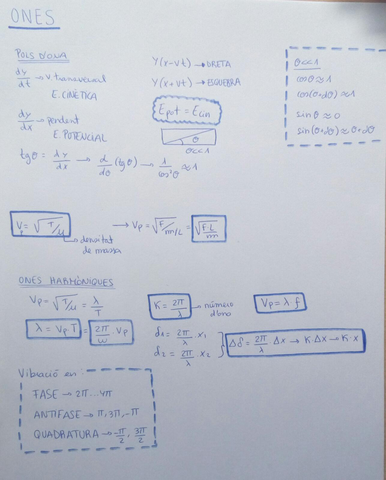 ONES
POLS D'ONA
dy/dt → v. transversal
E. CINÈTICA
dy/dx → pendent
E. POTENCIAL
tgθ = dy/dx → d/dθ (tgθ) → 1/cos²θ ≈ 1
Y(x-vt) → DRETA
Y(x+vt) → ESQUERRA
Epot = Ecin
θ
θ<<1
θ<<1
cosθ ≈ 1
cos(θ+dθ) ≈ 1
sinθ ≈ θ
sin(θ+dθ) ≈ θ+dθ
Vp = √T/μ → Vp = √F/m/L = √F·L/m
densitat de massa
ONES HARMÒNIQUES
Vp = √T/μ = λ/T
λ = Vp·T = 2π/ω · Vp
K = 2π/λ → número d'ona
Vp = λ·f
δ1 = 2π/λ · x1
δ2 = 2π/λ · x2
Δδ = 2π/λ Δx → K·Δx → K·x
Vibració en:
FASE → 2π...4π
ANTIFASE → π, 3π, -π
QUADRATURA → -π/2, 3π/2